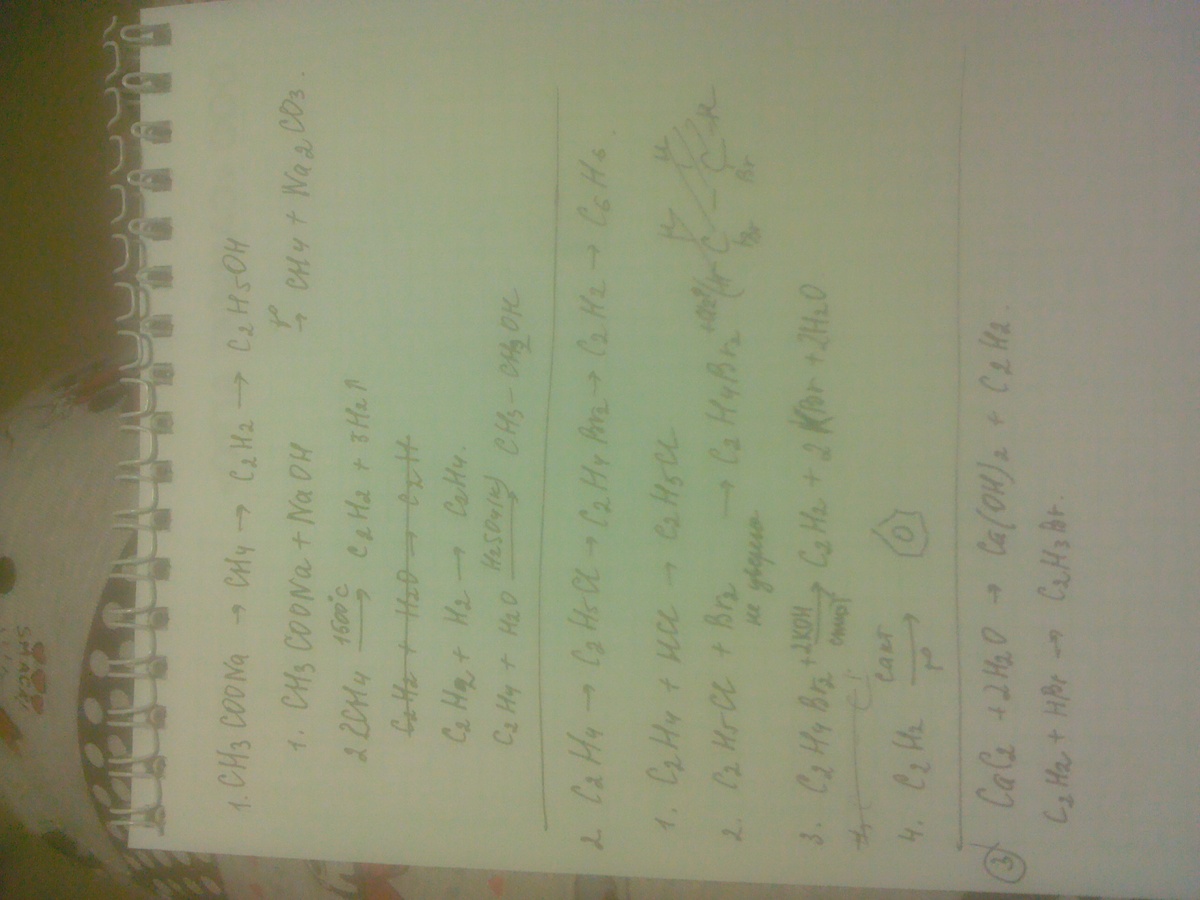 1. CH3COONa → CH4 → C2H2 → C2H5OH
1. CH3COONa + NaOH t° → CH4 + Na2CO3.
2 2CH4 1500°C → C2H2 + 3H2↑
C2H2 + H2O → C2H
C2H2 + H2 → C2H4.
C2H4 + H2O H2SO4(к) → CH3 – CH2OH
2. C2H4 → C2H5Cl → C2H4Br2 → C2H2 → C6H6.
1. C2H4 + HCl → C2H5Cl
2. C2H5Cl + Br2 → C2H4Br2
не уверена
H H
C C H
Br Br
3. C2H4Br2 +2KOH спирт → C2H2 + 2KBr + 2H2O
4. C2H2 Cакт t° →
3 CaC2 + 2H2O → Ca(OH)2 + C2H2.
C2H2 + HBr → C2H3Br.